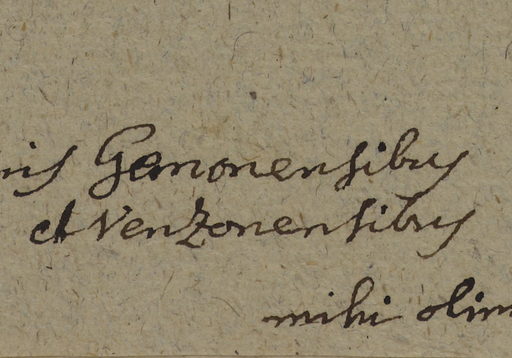 nis Gemonensibus
et Venzonensibus
mihi olim